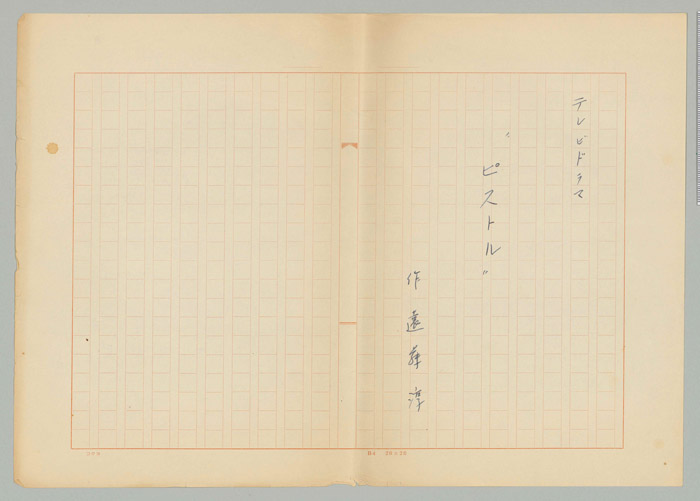 テレビドラマ
“ピストル”
作 遠藤淳
B4 20×20